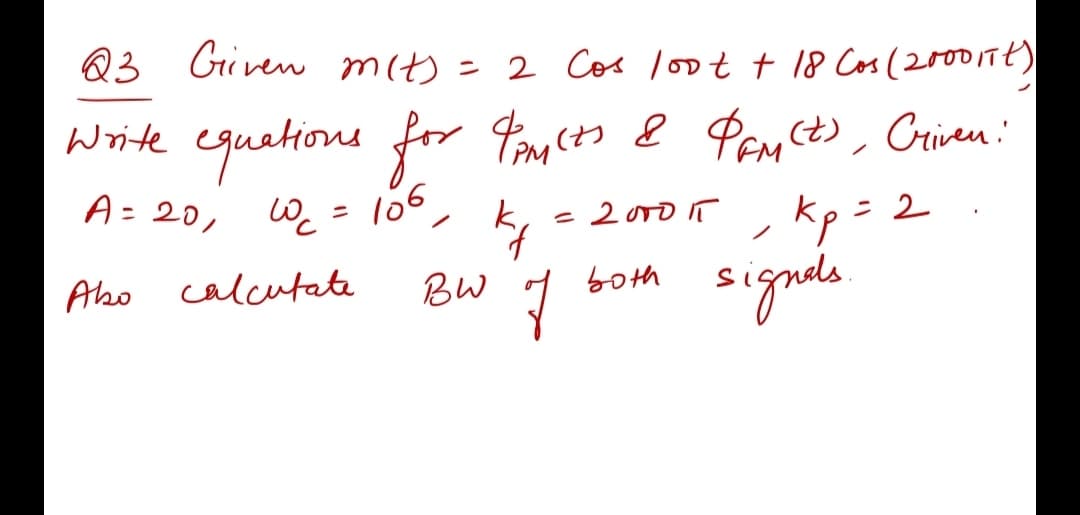 Q3 Given m(t) = 2 Cos 100t + 18 Cos(2000πt),
Write equations for φPM(t) & φFM(t), Given:
A = 20, ωc = 10⁶, kf = 2000π, kp = 2.
Also calcutate BW of both signals.